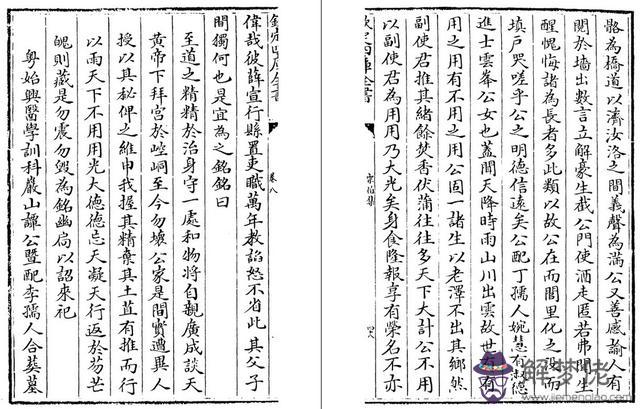 骼為橋道以濟汝洛之間義聲為滿公又善感諭人有
鬩於墻出數言立解豪生哉公門使酒走匿若弗聞生
醒愧悔諸為長者多此類以故公在而閭里化之沒而
填戶哭嗟乎公之明德信遠矣公配丁孺人婉慧有淑德
進士雲峯公女也蓋聞天降時雨山川出雲故世有有
用之用有不用之用公固一諸生以老澤不出其鄉然
副使君推其緒餘焚香伏蒲往往多天下大計公不用
以副使君為用用乃大光矣身食隆報享有榮名不亦
欽定四庫全書
宗伯集
偉哉彼薛宣行縣置吏職萬年教諂怒不省此其父子
間獨何也是宜為之銘銘曰
至道之精精於治身守一處和物將自親廣成談天
黄帝下拜宫於崆峒至今勿壊公家是間實遭異人
授以真秘俾之維申我握其精棄其土苴有推而行
以雨天下不用用光大德德忘天凝天行返於芴芒
魄則藏是勿震勿毀為銘幽扃以詔來祀
粤始興醫學訓科巖山譚公暨配李孺人合葬墓
欽定四庫全書
卷八
解梦佬
www.jiemenglao.com